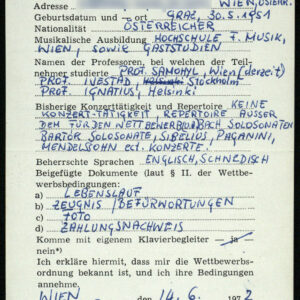 Adresse WIEN, ÖSTERR.
Geburtsdatum und -ort GRAZ, 30.5.1951
Nationalität ÖSTERREICHER
Musikalische Ausbildung HOCHSCHULE F. MUSIK,
WIEN, SOWIE GASTSTUDIEN
Namen der Professoren, bei welchen der Teil-
nehmer studierte PROF. SAMOHYL, Wien (derzeit)
PROF. IVESTAD, Stockholm
PROF. IGNATIUS, Helsinki
Bisherige Konzerttätigkeit und Repertoire KEINE
KONZERT-TÄTIGKEIT, REPERTOIRE AUSSER
DEM FÜR DEN WETTBEWERB VON BACH SOLOSONATEN
BARTÓK SOLOSONATE, SIBELIUS, PAGANINI,
MENDELSOHN ect. KONZERTE.
Beherrschte Sprachen ENGLISCH, SCHWEDISCH
Beigefügte Dokumente (laut § II. der Wettbe-
werbsbedingungen:
a) LEBENSLAUF
b) ZEUGNIS / BEFÜRWORTUNGEN
c) FOTO
d) ZAHLUNGSNACHWEIS
Komme mit eigenem Klavierbegleiter — ja —
nein*)
Ich erkläre hiermit, dass mir die Wettbewerbs-
ordnung bekannt ist, und ich ihre Bedingungen
annehme.
WIEN den 14.6. 1972